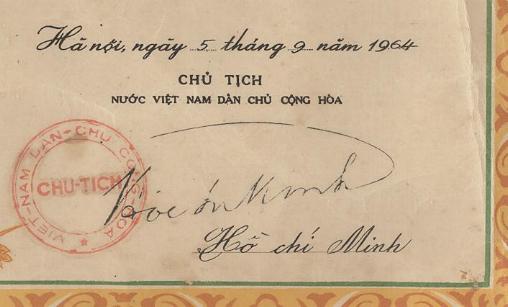 Hà nội, ngày 5 tháng 9 năm 1964
CHỦ TỊCH
NƯỚC VIỆT NAM DÂN CHỦ CỘNG HÒA
VIỆT-NAM DÂN-CHỦ CỘNG-HÒA
CHỦ-TỊCH
Hồ chí Minh